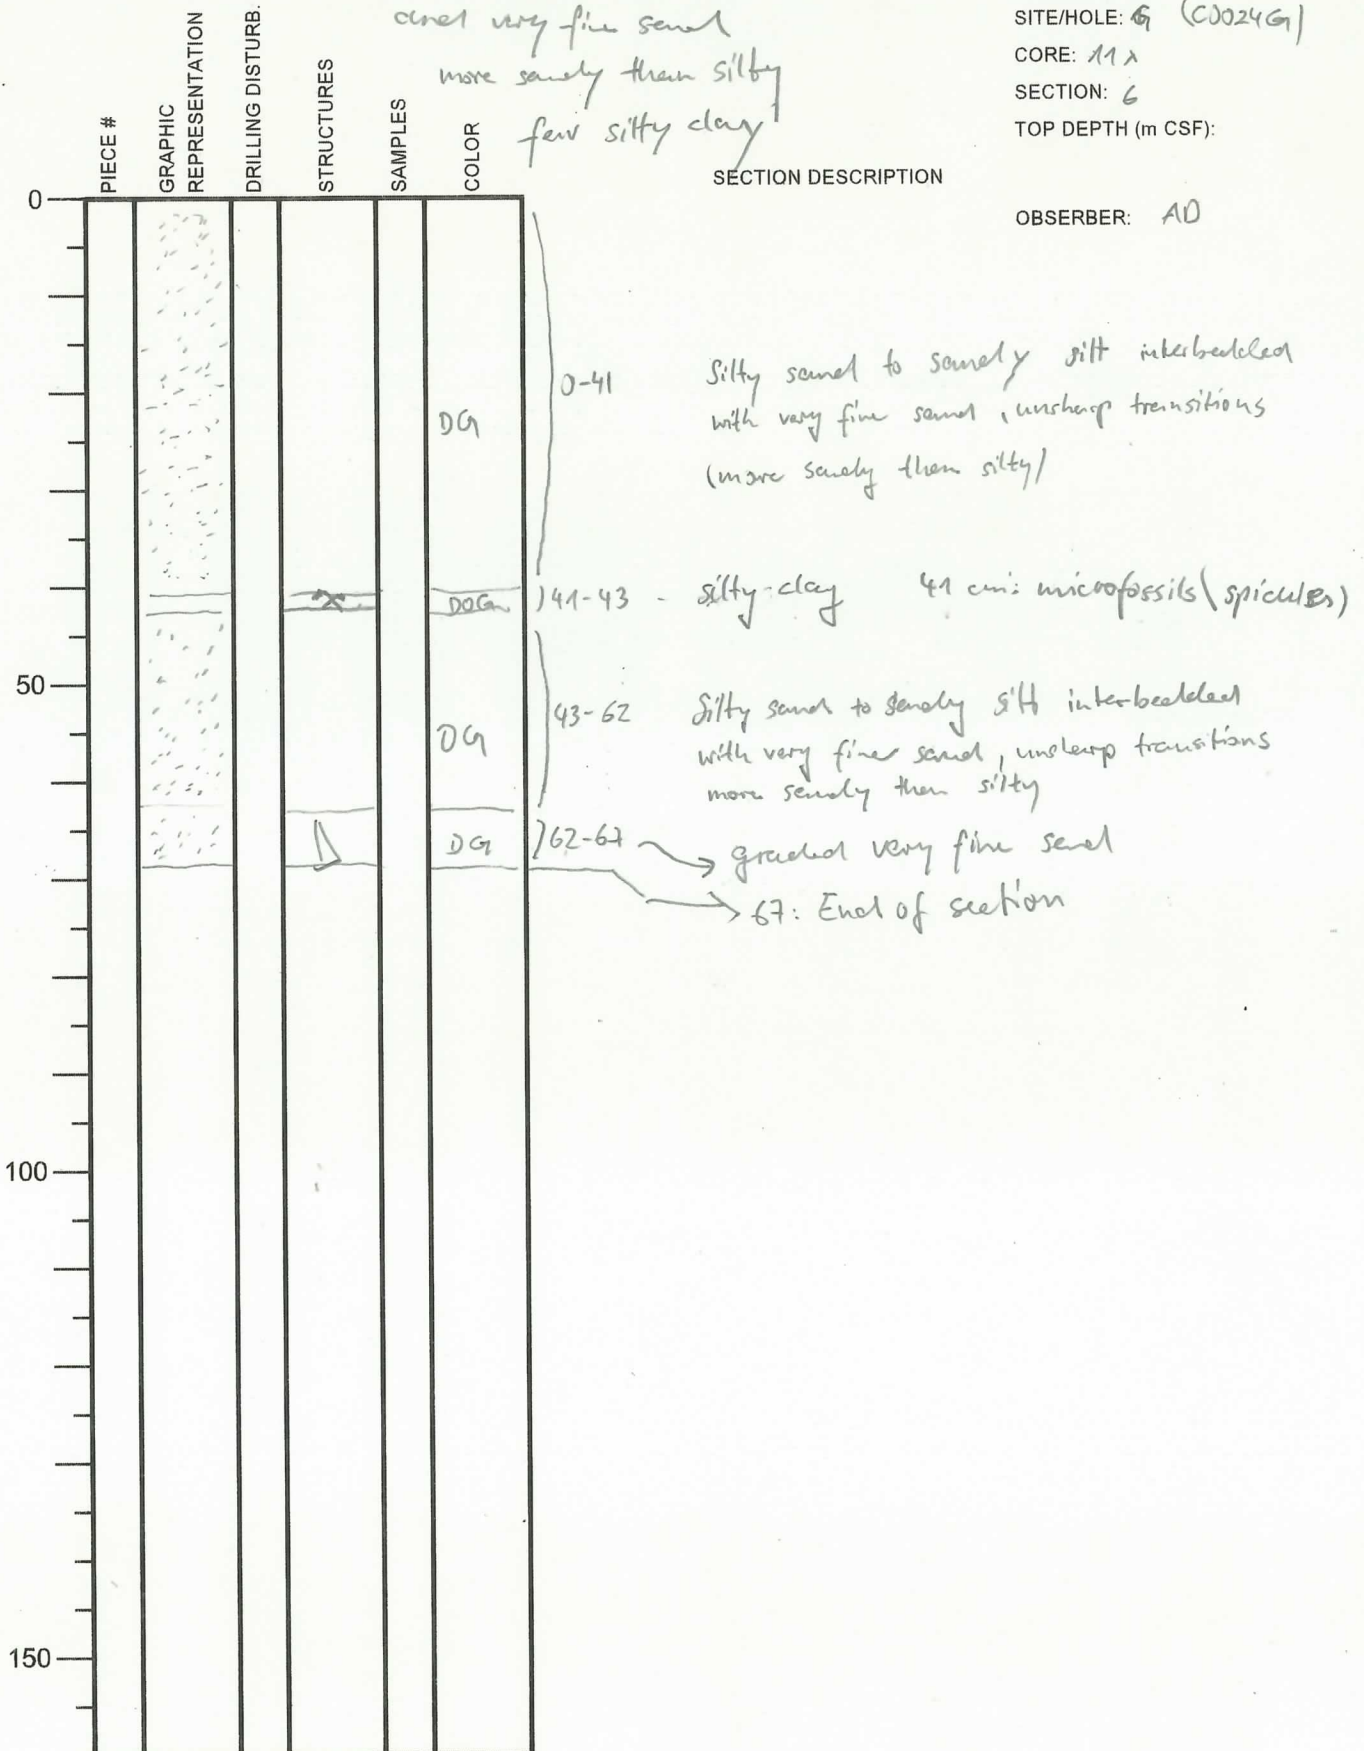 and very fine sand
more sandy than silty
few silty clay
SITE/HOLE: G (C0024G)
CORE: 11X
SECTION: 6
TOP DEPTH (m CSF):
PIECE #
GRAPHIC
REPRESENTATION
DRILLING DISTURB.
STRUCTURES
SAMPLES
COLOR
SECTION DESCRIPTION
OBSERBER: AD
0
DG
0-41
Silty sand to sandy silt interbedded
with very fine sand, unsharp transitions
(more sandy than silty)
X DOGn 41-43 - silty-clay 41 cm: microfossils (spicules)
50
DG
43-62
Silty sand to sandy silt interbedded
with very fine sand, unsharp transitions
more sandy than silty
DG 62-67 graded very fine sand
67: End of section
100
150